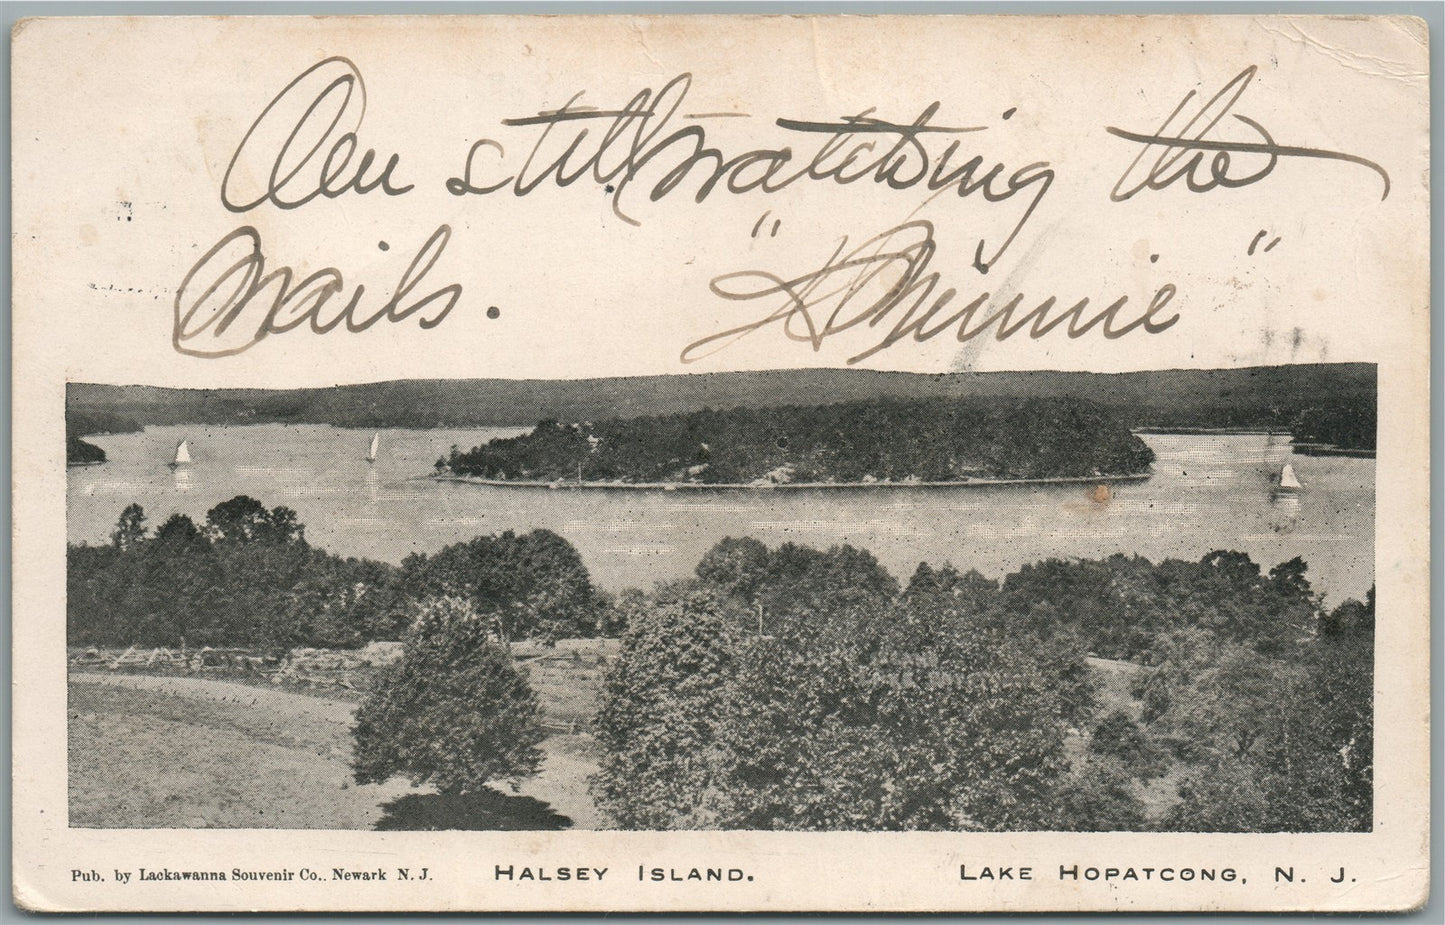 Am still watching the
mails. "Minnie"
Pub. by Lackawanna Souvenir Co.. Newark N. J. HALSEY ISLAND. LAKE HOPATCONG, N. J.